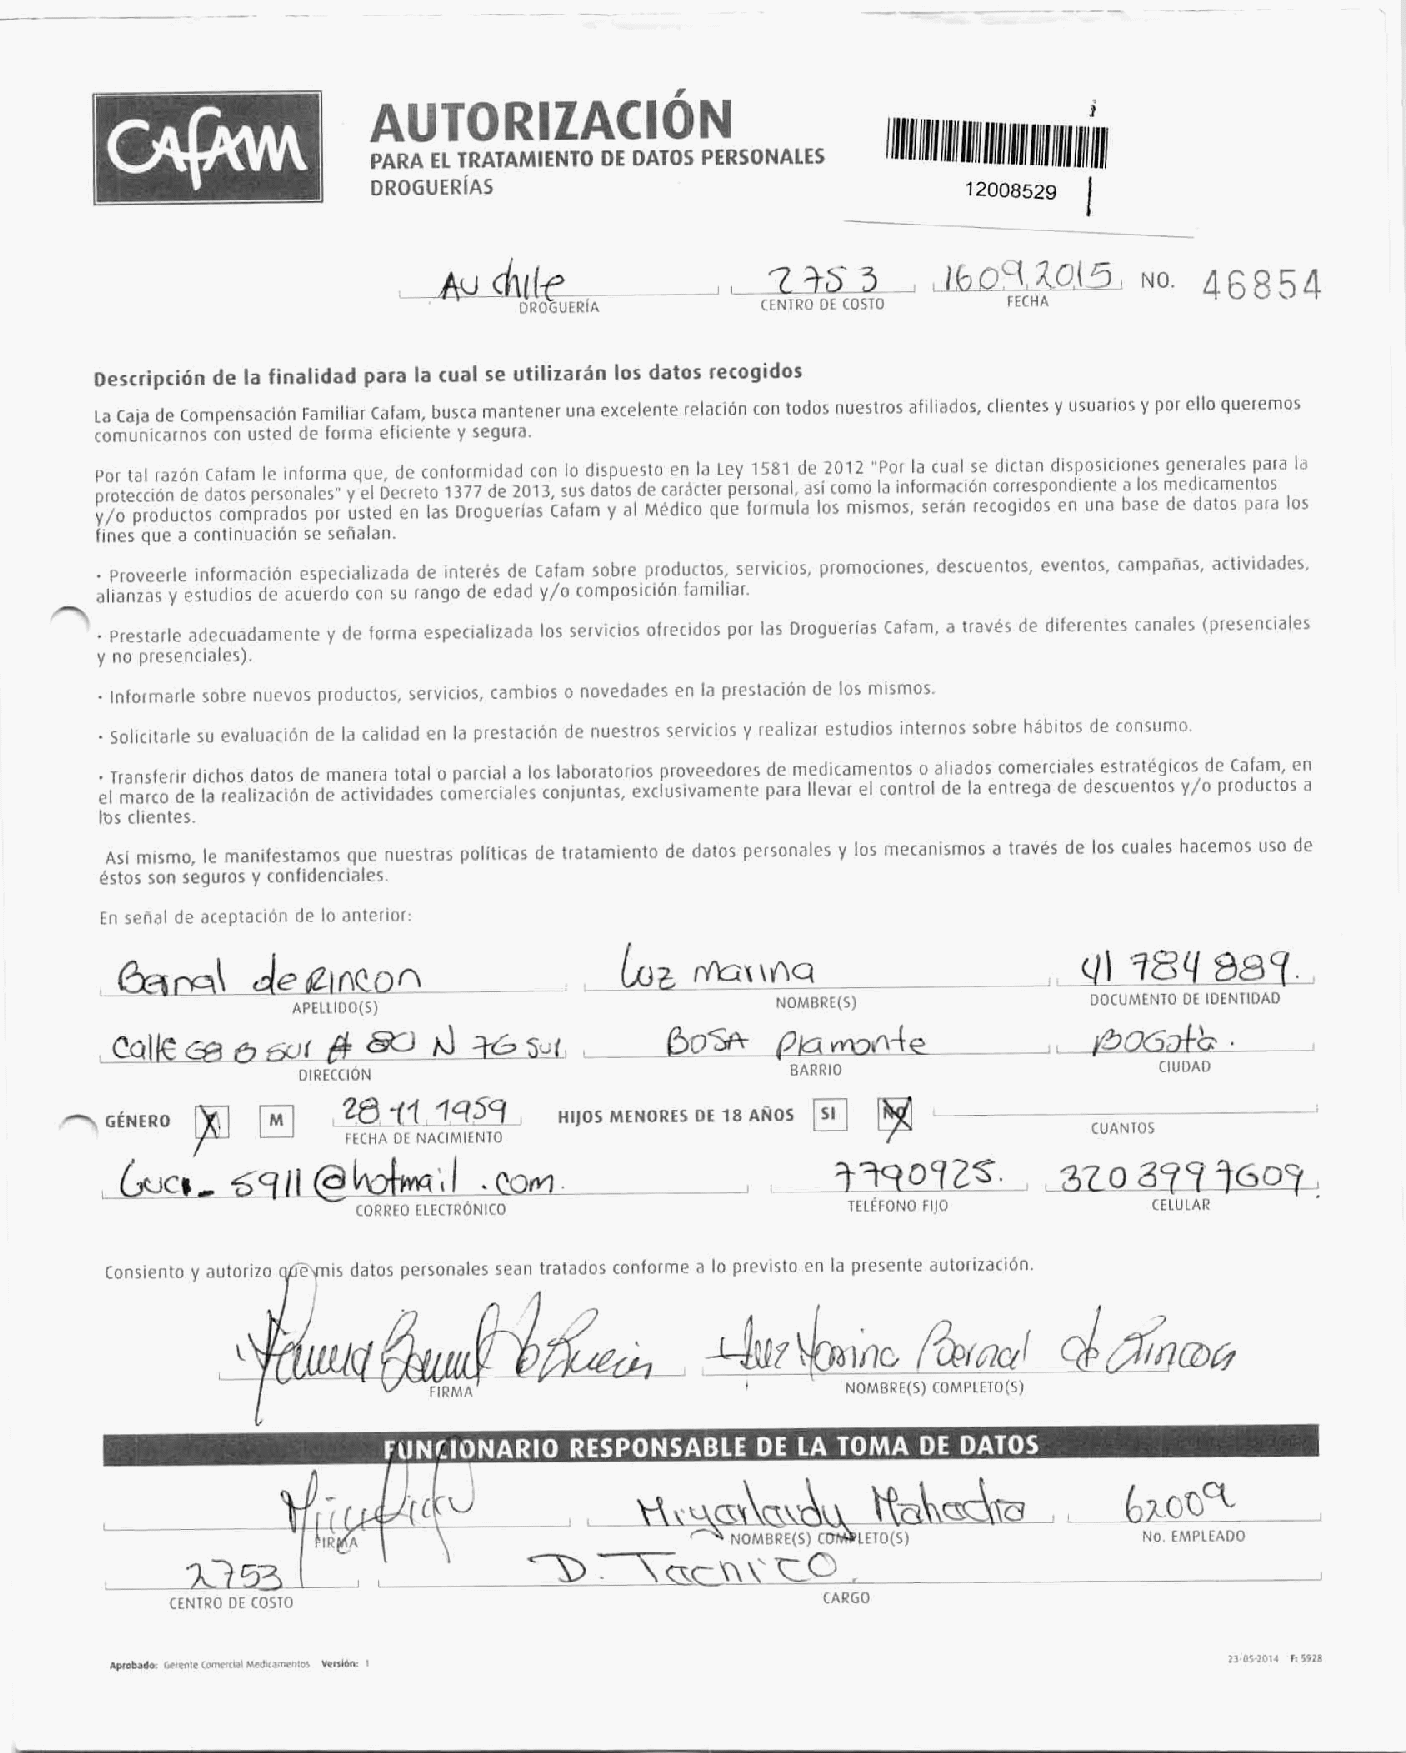 CAFAM
AUTORIZACIÓN
PARA EL TRATAMIENTO DE DATOS PERSONALES
DROGUERÍAS
12008529
AU chile 2753 16.09.2015 NO. 46854
DROGUERÍA CENTRO DE COSTO FECHA
Descripción de la finalidad para la cual se utilizarán los datos recogidos
La Caja de Compensación Familiar Cafam, busca mantener una excelente relación con todos nuestros afiliados, clientes y usuarios y por ello queremos
comunicarnos con usted de forma eficiente y segura.
Por tal razón Cafam le informa que, de conformidad con lo dispuesto en la Ley 1581 de 2012 "Por la cual se dictan disposiciones generales para la
protección de datos personales" y el Decreto 1377 de 2013, sus datos de carácter personal, así como la información correspondiente a los medicamentos
y/o productos comprados por usted en las Droguerías Cafam y al Médico que formula los mismos, serán recogidos en una base de datos para los
fines que a continuación se señalan.
· Proveerle información especializada de interés de Cafam sobre productos, servicios, promociones, descuentos, eventos, campañas, actividades,
alianzas y estudios de acuerdo con su rango de edad y/o composición familiar.
· Prestarle adecuadamente y de forma especializada los servicios ofrecidos por las Droguerías Cafam, a través de diferentes canales (presenciales
y no presenciales).
· Informarle sobre nuevos productos, servicios, cambios o novedades en la prestación de los mismos.
· Solicitarle su evaluación de la calidad en la prestación de nuestros servicios y realizar estudios internos sobre hábitos de consumo.
· Transferir dichos datos de manera total o parcial a los laboratorios proveedores de medicamentos o aliados comerciales estratégicos de Cafam, en
el marco de la realización de actividades comerciales conjuntas, exclusivamente para llevar el control de la entrega de descuentos y/o productos a
los clientes.
Así mismo, le manifestamos que nuestras políticas de tratamiento de datos personales y los mecanismos a través de los cuales hacemos uso de
éstos son seguros y confidenciales.
En señal de aceptación de lo anterior:
de Rincon Luz marina 41 784 889.
APELLIDO(S) NOMBRE(S) DOCUMENTO DE IDENTIDAD
Calle 68 B sur # 80 N 76 sur BOSA Piamonte BOGotà.
DIRECCIÓN BARRIO CIUDAD
GÉNERO M 28.11.1959 HIJOS MENORES DE 18 AÑOS SI NO
FECHA DE NACIMIENTO CUANTOS
Luci_5911@hotmail.com. 7790925. 320 3997609
CORREO ELECTRÓNICO TELÉFONO FIJO CELULAR
Consiento y autorizo que mis datos personales sean tratados conforme a lo previsto en la presente autorización.
Luz Marina Bernal de Rincon
FIRMA NOMBRE(S) COMPLETO(S)
FUNCIONARIO RESPONSABLE DE LA TOMA DE DATOS
62009
FIRMA NOMBRE(S) COMPLETO(S) No. EMPLEADO
2753 D. Tacnico
CENTRO DE COSTO CARGO
Aprobado: Gerente Comercial Medicamentos Versión: 1 23-05-2014 F: 5928